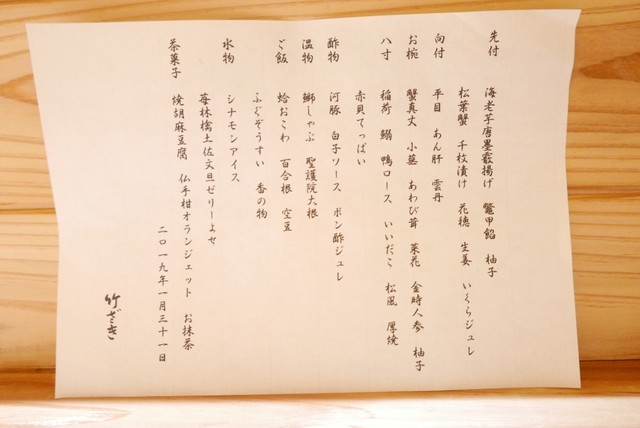 先付　海老芋唐墨霰揚げ　鼈甲餡　柚子
松葉蟹　千枚漬け　花穂　生姜　いくらジュレ
向付　平目　あん肝　雲丹
お椀　蟹真丈　小蕪　あわび茸　菜花　金時人参　柚子
八寸　稲荷　鰯　鴨ロース　いいだこ　松風　厚焼
赤貝てっぱい
酢物　河豚　白子ソース　ポン酢ジュレ
温物　鰤しゃぶ　聖護院大根
ご飯　蛤おこわ　百合根　空豆
ふぐぞうすい　香の物
水物　シナモンアイス
苺林檎土佐文旦ゼリーよせ
茶菓子　焼胡麻豆腐　仏手柑オランジェット　お抹茶
二〇一九年一月三十一日
竹ざき